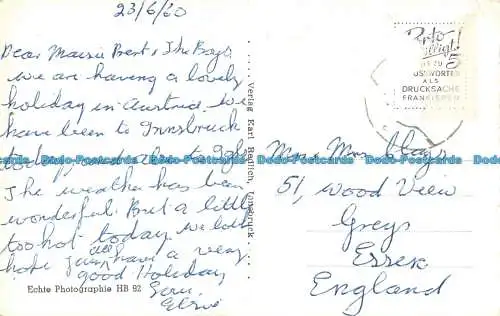 23/6/60
Dear Maisie Bert & The Boys
we are having a lovely
holiday in Austria. we
have been to Innsbruck
today, and also to
The weather has been
wonderful. But a little
too hot today. we both
hope you all have a very
good Holiday
Echte Photographie HB 92
Verlag Karl Redlich, Innsbruck
Porto
billigt!
BIS ZU
5
USTWÖRTER
ALS
DRUCKSACHE
FRANKIEREN
Mr & Mrs Hays
51, Wood View
Grays
Essex
England
Dodo-Postcards Dodo-Postcards Dodo-Postcards Dodo-Postcards Dodo-Postcards Dodo-Postcards